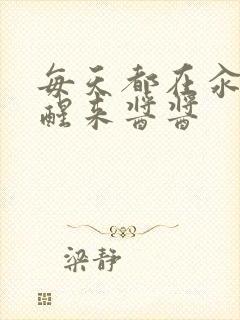 每天都在汆
醒来酱酱
梁静